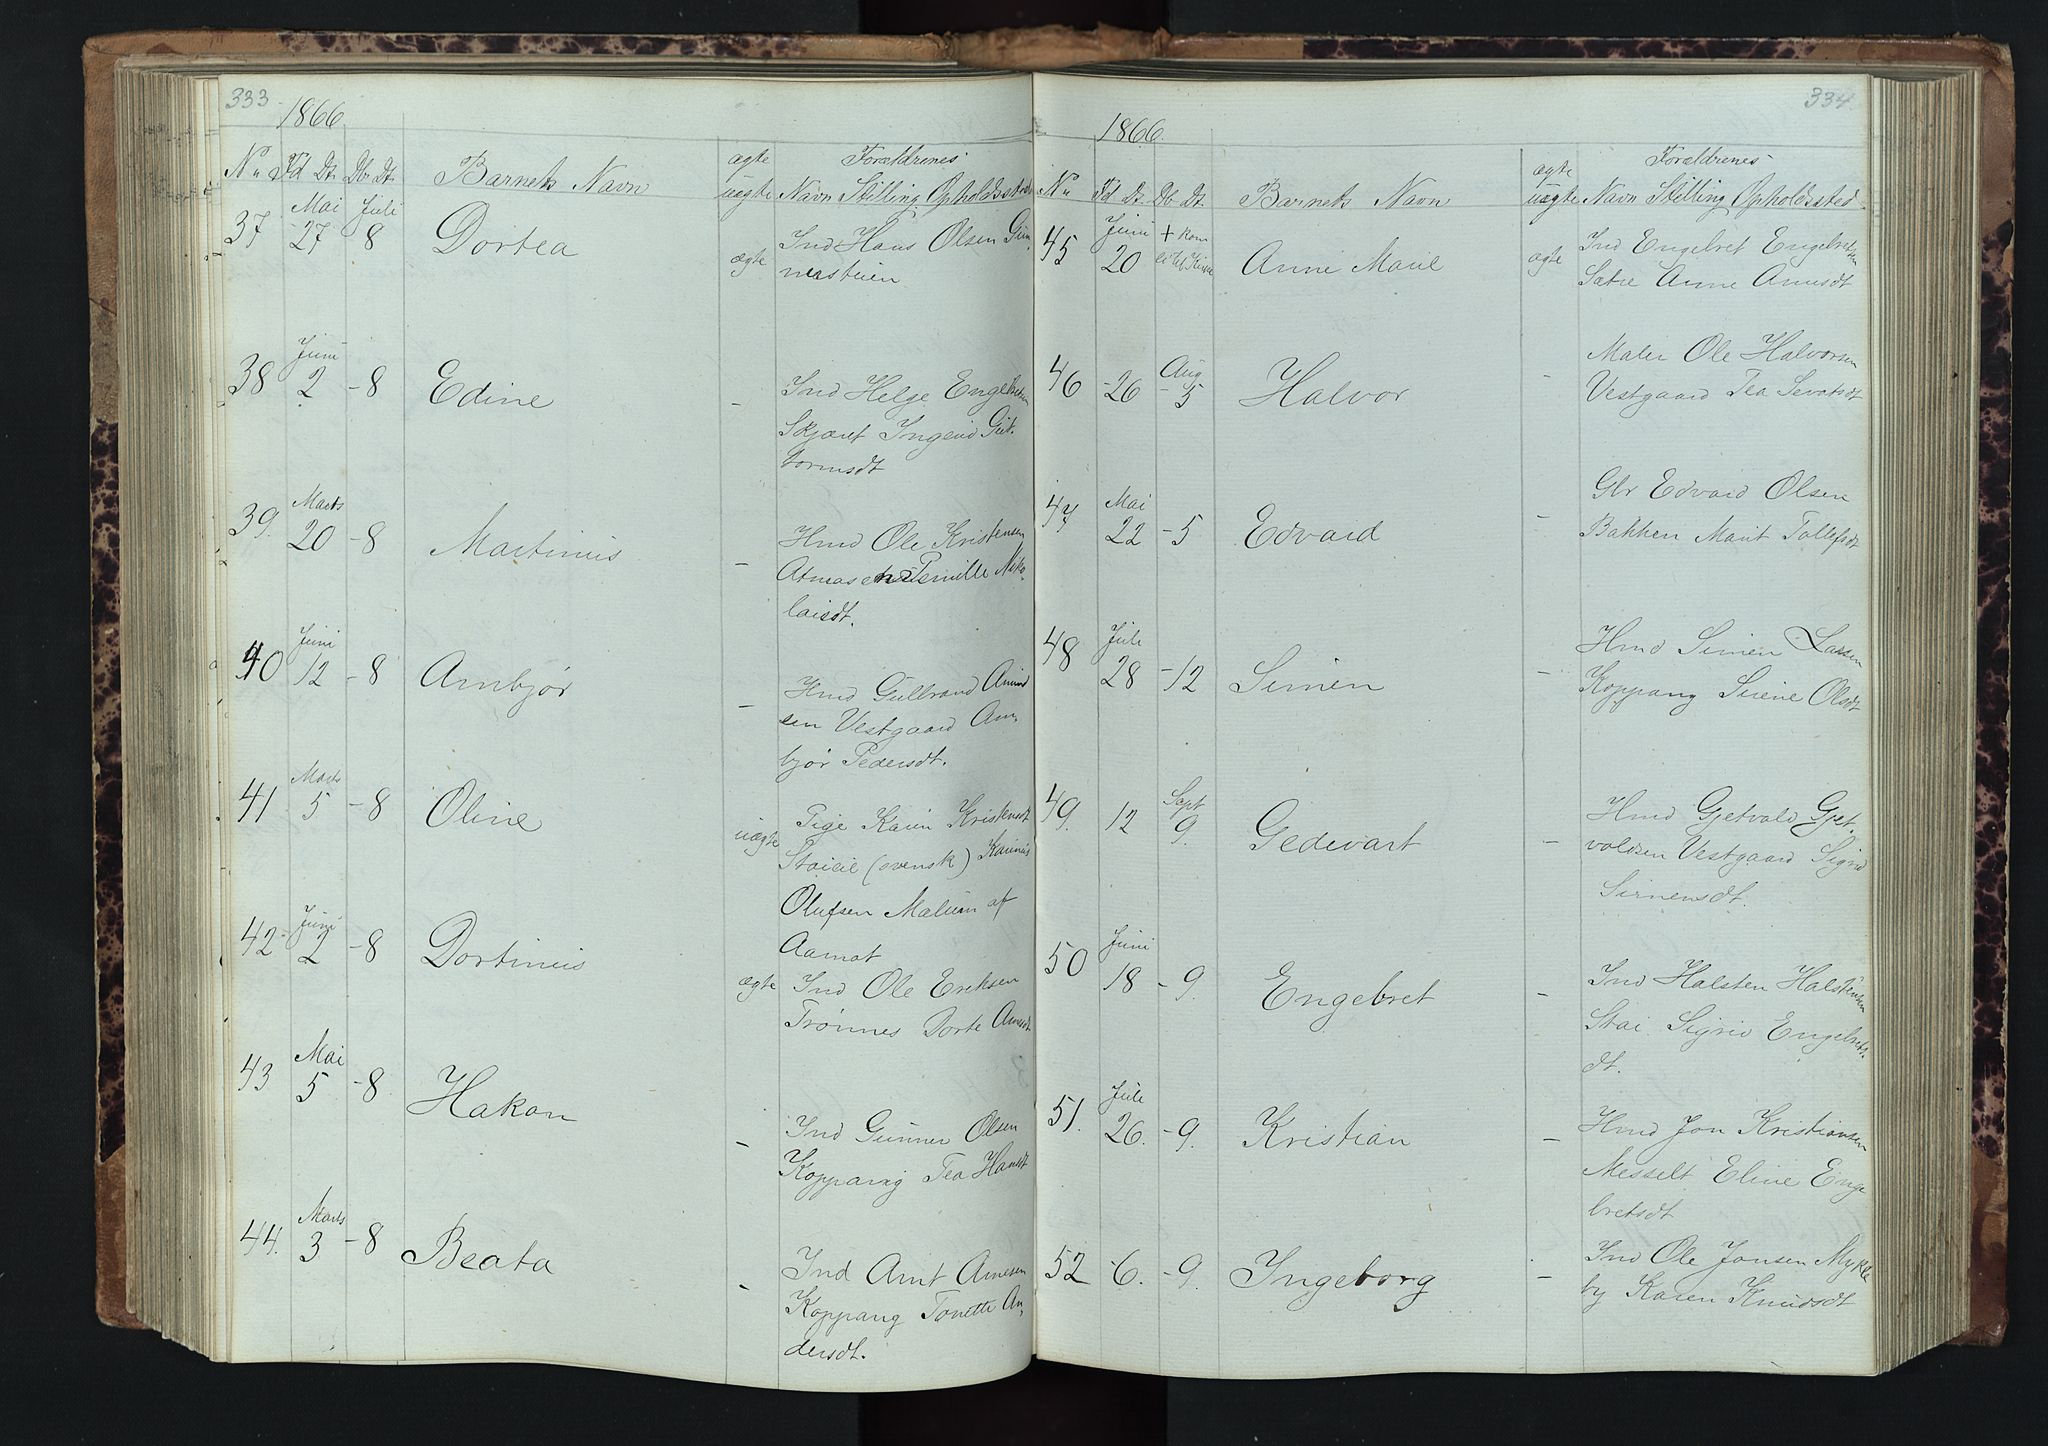 333
1866
No Fd Dt. Db Dt. Barnets Navn ægte uægte Forældrenes Navn Stilling Opholdssted
37 Mai 27 Juli 8 Dortea ægte Ind Hans Olsen
38 Juni 2 - 8 Edine - Ind Helge Engebretsen
Skjæret Ingerid Gut-
tormsdt
39. Marts 20 - 8 Martinus - Hmd Ole Kristensen
Pernille Niko-
laisdt.
40 Juni 12 - 8 Arnbjør - Hmd Gulbrand Amund
sen Vestgaard Arn-
bjør Pedersdt.
41 Marts 5 - 8 Oline uægte Pige Karen Kristensdt
(svensk)
Olufsen af
Aamot
42 Juni 2 - 8 Dortinus ægte Ind Ole Eriksen
Trønnes Dorte Arnesdt
43 Mai 5 - 8 Hakon - Ind Gunner Olsen
Koppang Tea Hansdt
44. Marts 3 - 8 Beata - Ind Arnt Arnesen
Koppang Tonette An-
dersdt.
334.
1866.
No Fd Dt. Db Dt. Barnets Navn ægte uægte Forældrenes Navn Stilling Opholdssted
45 Juni 20 + Anne Marie ægte Ind Engebret Engebretsen
Sætre Anne Arnesdt
46 - 26 Aug - 5 Halvor - Maler Ole Halvorsen
Vestgaard Tea
47 Mai 22 - 5 Edvard - Gbr Edvard Olsen
Bakken Marit Tollefsdt
48 Juli 28 - 12 Simen - Hmd Simen Larsen
Koppang Sirene Olsdt
49. 12 Sept 9. Gedevart - Hmd Gjetvald Gjet-
valdsen Vestgaard Sigrid
Simensdt.
50 Juni 18 - 9. Engebret - Ind Halsten Halstensen
Stai Sigrid Engebrets-
dt.
51. Juli 26. - 9. Kristian - Hmd Jon Kristiansen
Messelt Eline Enge
bretsdt
52 - 6. - 9. Ingeborg - Ind Ole Jonsen Mykle
by Karen Knudsdt